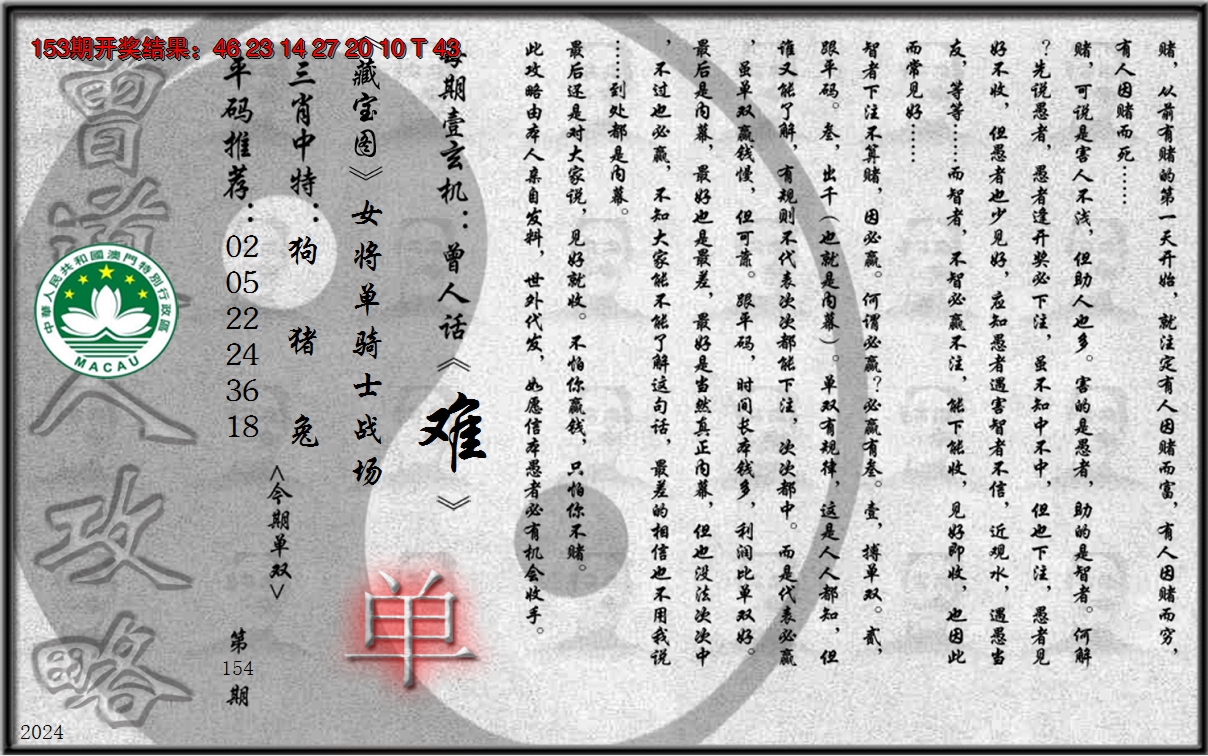 153期开奖结果：46 23 14 27 20 10 T 43
赌，从前有赌的第一天开始，就注定有人因赌而富，有人因赌而穷，
有人因赌而死……
赌，可说是害人不浅，但助人也多。害的是愚者，助的是智者。何解
？先说愚者，愚者逢开奖必下注，虽不知中不中，但也下注，愚者见
好不收，但愚者也少见好，应知愚者遇害智者不信，近观水，遇愚当
友，等等……而智者，不智必赢不注，能下能收，见好即收，也因此
而常见好……
智者下注不算赌，因必赢。何谓必赢？必赢有叁。壹，搏单双。贰，
跟平码。叁，出千（也就是内幕）。单双有规律，这是人人都知，但
谁又能了解，有规则不代表次次都能下注，次次都中。而是代表必赢
，虽单双赢钱慢，但可靠。跟平码，时间长本钱多，利润比单双好。
最后是内幕，最好也是最差，最好是当然真正内幕，但也没法次次中
，不过也必赢，不知大家能不能了解这句话，最差的相信也不用我说
……到处都是内幕。
最后还是对大家说，见好就收。不怕你赢钱，只怕你不赌。
此攻略由本人亲自发料，世外代发，如愿信本愚者必有机会收手。
每期壹玄机：曾人话《难》
《藏宝图》女将单骑士战场
单
三肖中特：狗 猪 兔
<今期单双>
平码推荐：02 05 22 24 36 18
第154期
曾道人攻略
中華人民共和國澳門特別行政區
MACAU
2024